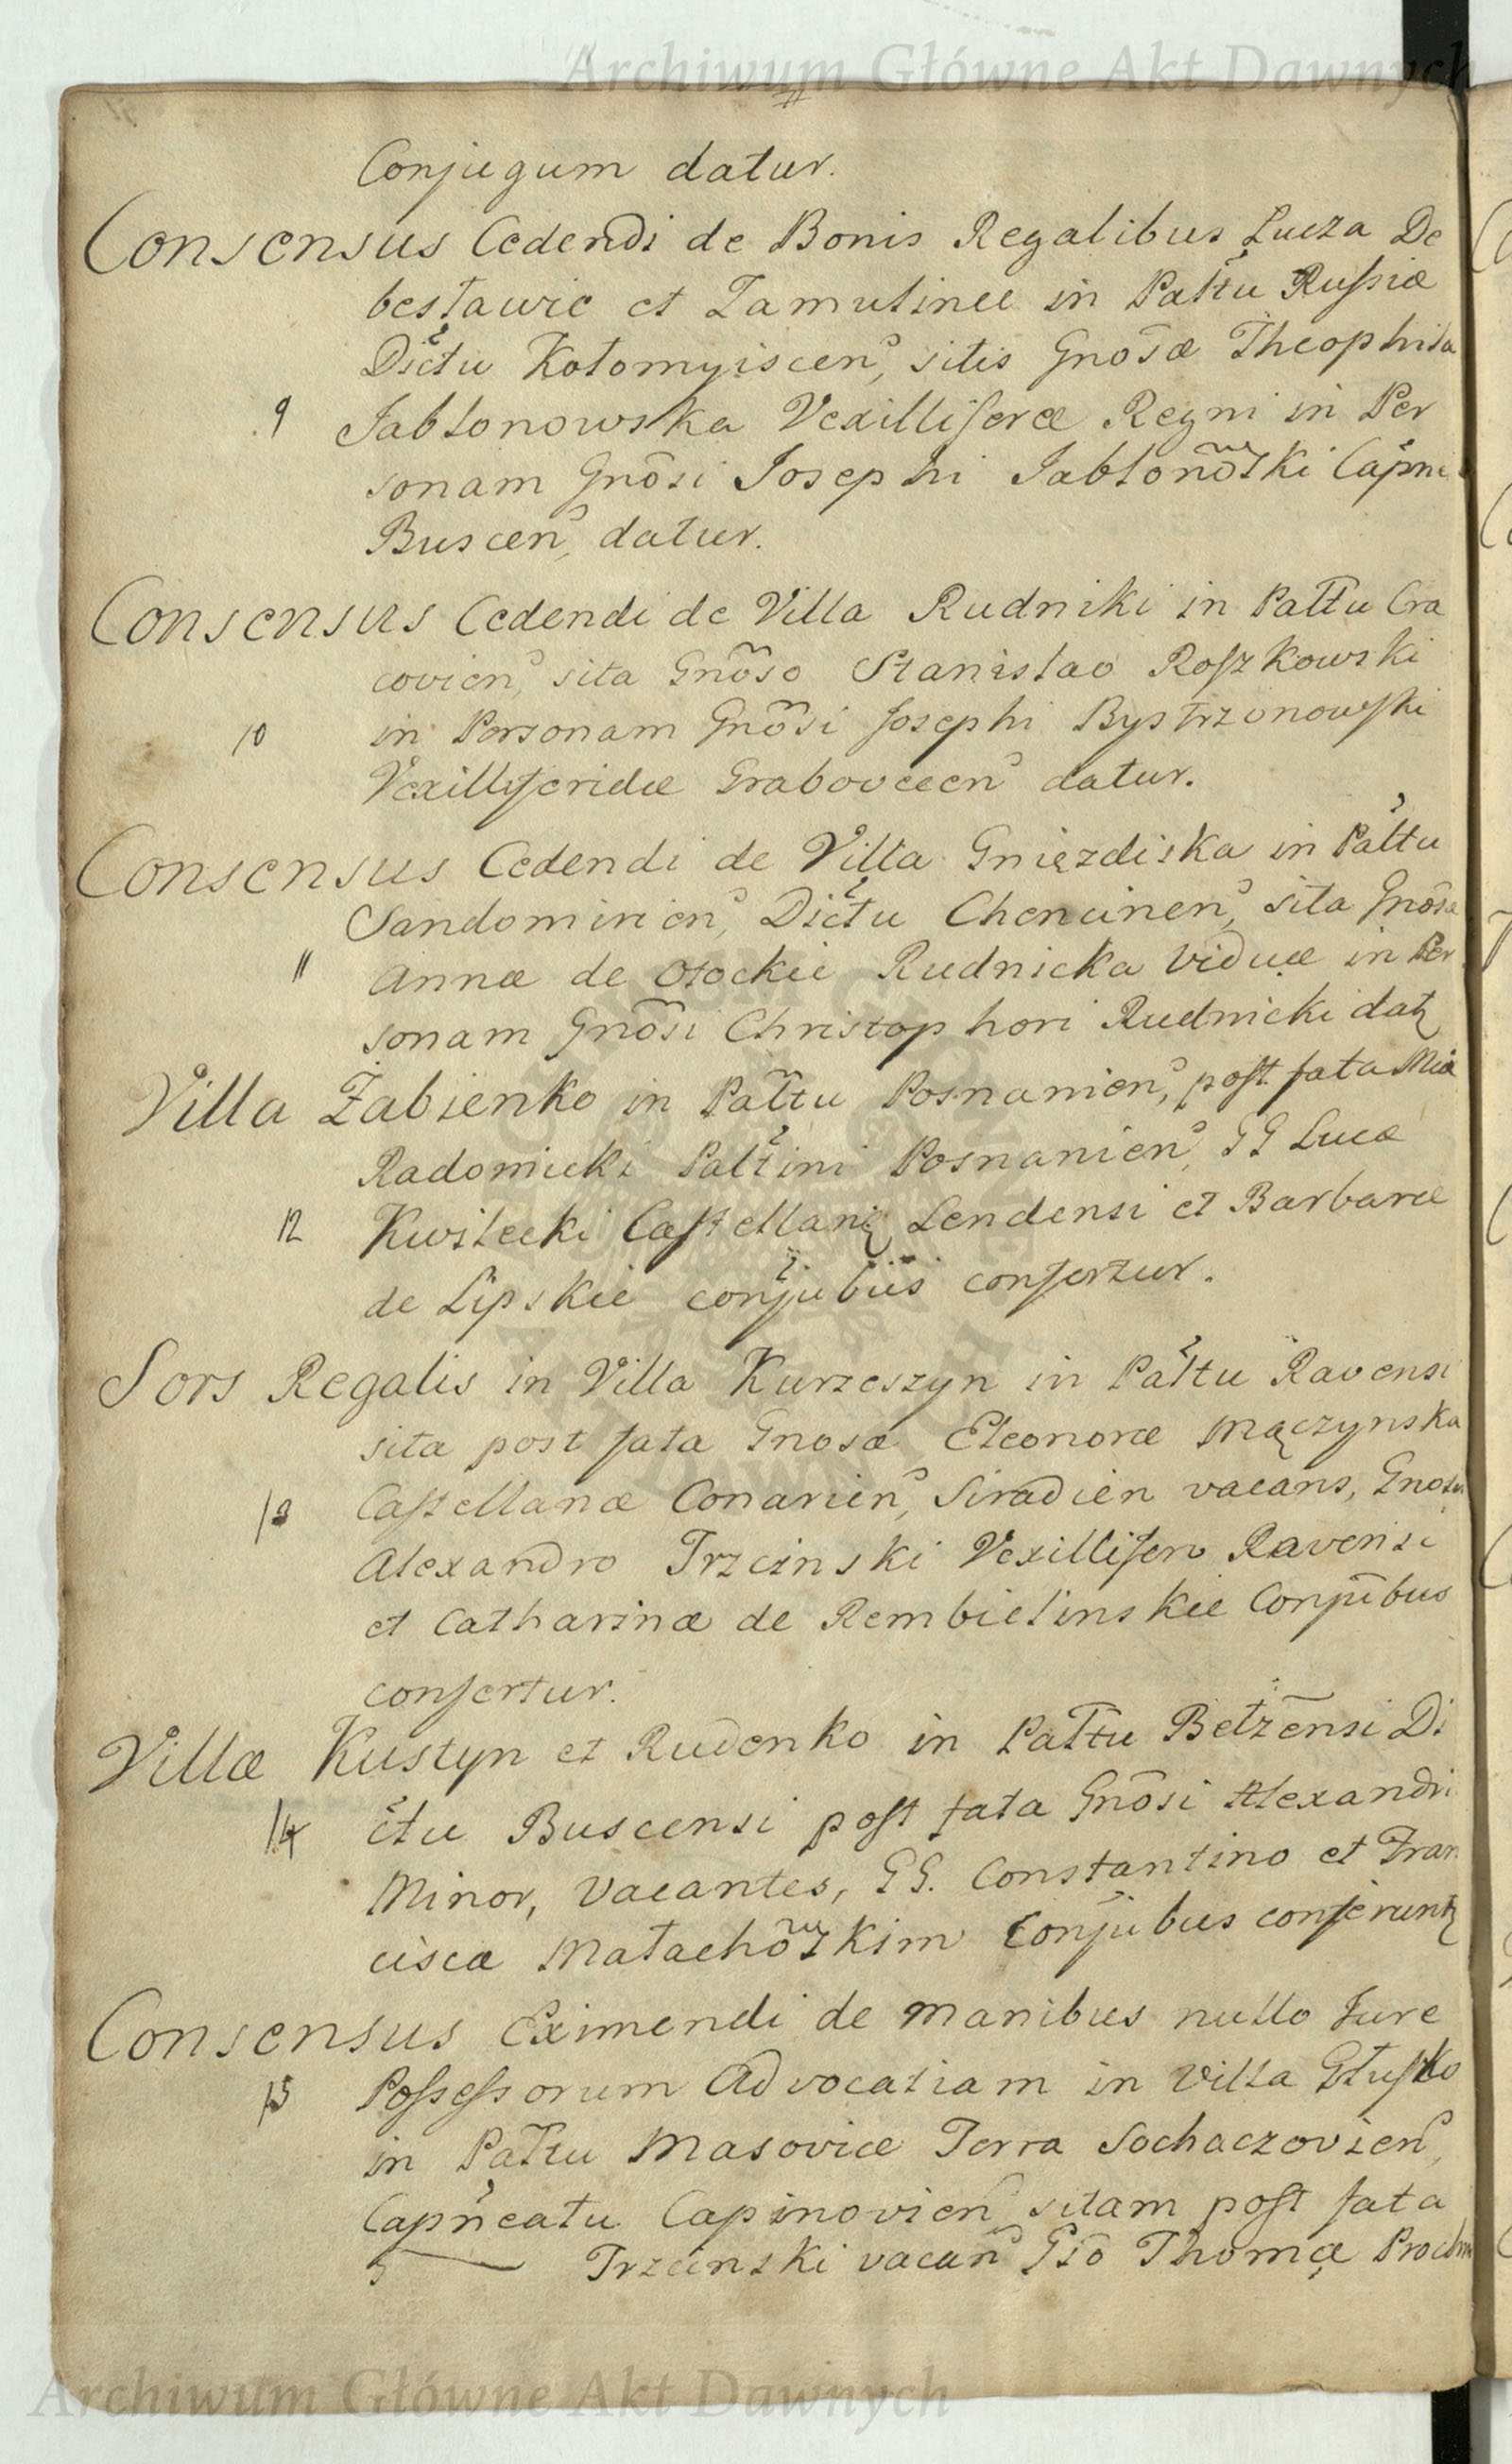 Archiwum Główne Akt Dawnych
Conjugum datur.
Consensus Cedendi de Bonis Regalibus Lucza De
besławie et Zamulince in Pałtu Russiæ
Dictu Kołomyiscen, sitis Gnosæ Theophila
9 Jabłonowska Vexilliferæ Regni in Per
sonam Gnosi Josephi Jabłonowski Capnei
Buscen, datur.
Consensus Cedendi de Villa Rudniki in Palttu Cra
covien, sita Gnoso Stanislao Roszkowski
10 in Personam Gnosi Josephi Bystrzonowski
Vexilliferidæ Grabovecen datur.
Consensus Cedendi de Villa Gnięzdiska in Palttu
Sandomirien, Dictu Chencinen, sita Gnosæ
11 Annæ de Otockie Rudnicka Viduæ in Per
sonam Gnosi Christophori Rudnicki datz
Villa Żabienko in Palttu Posnanien, post fata Mià
Radomicki Paltini Posnanien, GG Lucæ
12 Kwilecki Castellanę Lendensi et Barbaræ
de Lipskie conjubus confertur.
Sors Regalis in Villa Kurzeszyn in Palttu Ravensi
sita post fata Gnosæ Eleonoræ Mączynska
13 Castellanæ Conarien, Siradien vacans, Gnoso
Alexandro Trzcinski Vexillifero Ravensi
et Catharinæ de Rembielinskie Conjubus
confertur.
Villæ Kustyn et Rudenko in Palttu Bełzensi Di
14 ctu Buscensi post fata Gnosi Alexandri
Minor, Vacantes, GG. Constantino et Fran
ciscæ Małachowskim Conjubus conferuntz
Consensus Eximendi de manibus nullo Jure
15 Possessorum Advocatiam in Villa Głusko
in Palttu Masoviæ Terra Sochaczovien,
Capneatu Capinovien sitam post fata
Trzcinski vacan Gso Thomæ
Archiwum Główne Akt Dawnych